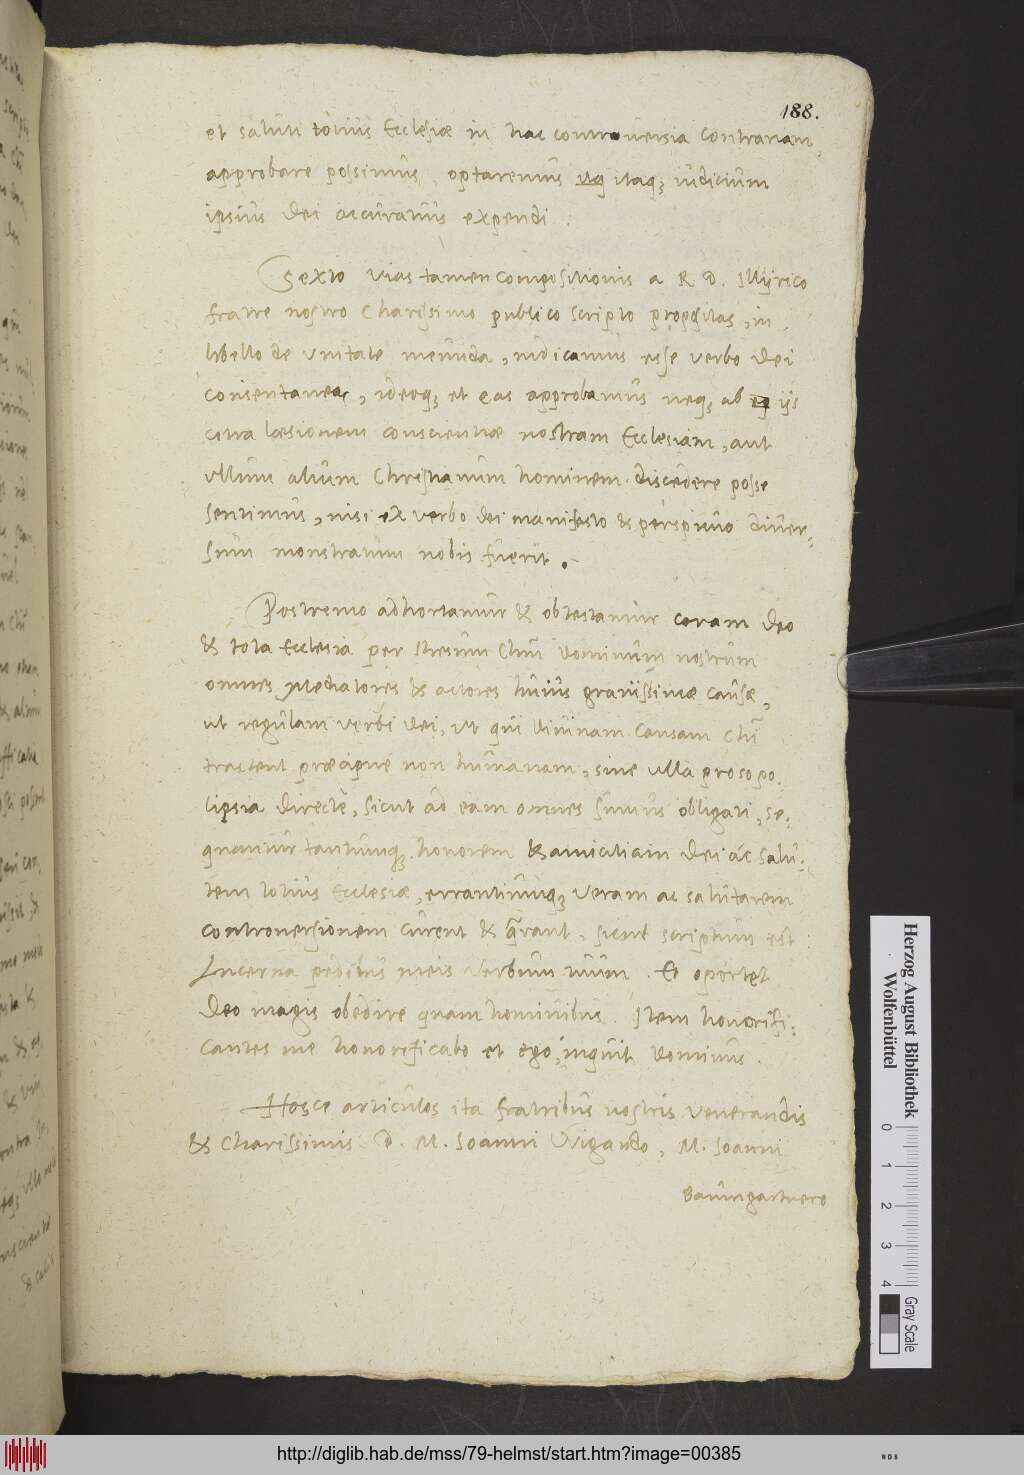 188.
et saluti totius Ecclesiæ in hac controuersia contrariam,
approbare possimus, optaremus itaq; iudicium
ipsius dei accuratius expendi.
Sexto vias tamen compositionis a R D. Illyrico
fratre nostro Charissimo publico scripto propositas, in
libello de vnitate metuida, iudicamus esse verbo dei
consentaneas, ideoq; et eas approbamus neq; ab ijs
citra læsionem conscientiæ nostram Ecclesiam, aut
vllum alium Christianum hominem discedere posse
sentimus, nisi ex verbo dei manifesto & perspicuo diuer-
sum monstratum nobis fuerit.
Postremo adhortamur & obtestamur coram deo
& tota Ecclesia per Ihesum Chm̄ dominum nostrum
omnes Mediatores & actores huius grauissimæ causæ,
ut regulam verbi dei, ut qui diuinam causam Chī
tractent præcipue non humanam, sine vlla prosopo-
lipsia directe, sicut ad eam omnes sumus obligati, se-
quantur tantumq; honorem & amicitiam dei ac salu-
tem totius Ecclesiæ, errantiumq; veram ac salutarem
controuersionem curent & q̄rant, sicut scriptum est
Lucerna pedibus meis verbum tuum. Et oportet
deo magis obedire quam hominibus. Item honorifi-
cantes me honorificabo et ego, inquit dominus.
Hosce articulos ita fratribus nostris venerandis
& Charissimis D. M. Ioanni Wigando, M. Ioanni
Baumgartnero
Herzog August Bibliothek
Wolfenbüttel
0 1 2 3 4
Gray Scale
http://diglib.hab.de/mss/79-helmst/start.htm?image=00385